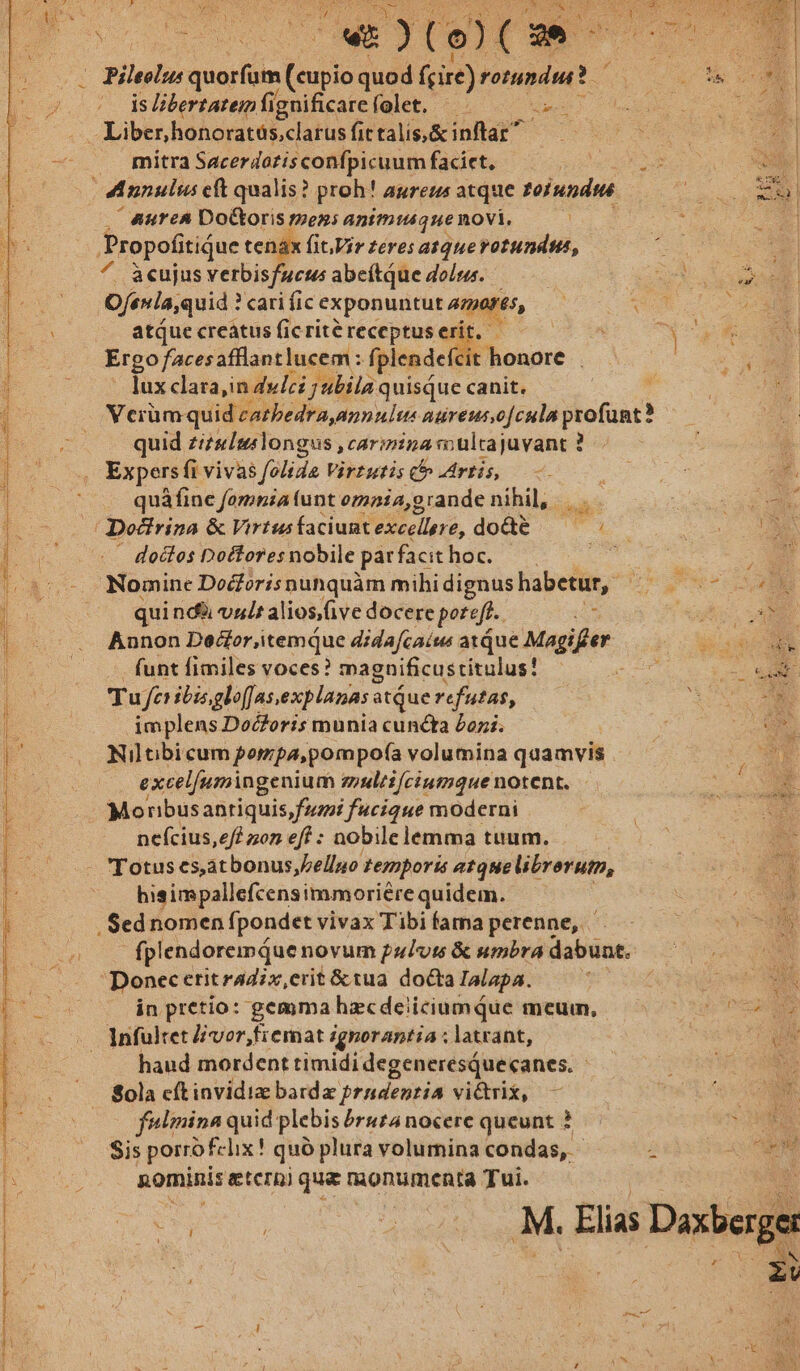 )(o)(
Pileolus quorſum (cupio quod ſcire) rotundus?
is libertatem ſignificare ſolet.
Liber, honoratús, clarus ſit talis, & inſtar
mitra Sacerdotis conſpicuum faciet.
Annulus eſt qualis? proh! aureus atque rotundus
aurea Doctoris mens animusque novi.
Propoſitiq́ue tenax ſit, Vir teres atque rotundus,
à cujus verbis fucus abeſtq́ue dolus.
Oſcula, quid? cari ſic exponuntut amores,
atq́ue creatus ſic ritè receptus erit.
Ergo faces afflant lucem: ſplendeſcit honore
lux clara, in dulci jubila quisq́ue canit.
Verùm quid cathedra, annulus aureus, oſcula proſunt?
quid titulus longus, carmina multa juvant?
Expers ſi vivas ſolida Virtutis & Artis,
quâ ſine ſomnia ſunt omnia, grande nihil,
Doctrina & Virtus faciunt excellere, doctè
doctos Doctores nobile par facit hoc.
Nomine Doctoris nunquàm mihi dignus habetur,
qui vult alios, ſive docere poteſt.
Annon Doctor, itemq́ue didaſcalus atq́ue Magiſter
ſunt ſimiles voces? magnificus titulus!
Tu ſcribis, gloſſas, explanas atq́ue refutas,
implens Doctoris munia cuncta boni.
Nil tibi cum pompa, pompoſa volumina quamvis
excelſum ingenium multiſciumque notent.
Moribus antiquis, fumi fucique moderni
neſcius, eſt non eſt: nobile lemma tuum.
Totus es, at bonus, helluo temporis atque librorum,
his impalleſcens immoriêre quidem.
Sed nomen ſpondet vivax Tibi fama perenne,
ſplendoremq́ue novum pulvis & umbra dabunt.
Donec erit radix, erit & tua docta Ialapa.
in pretio: gemma hæc deliciumq́ue meum,
Inſultet livor, fremat ignorantia: latrant,
haud mordent timidi degeneresq́ue canes.
Sola eſt invidiæ bardæ prudentia victrix,
fulmina quid plebis bruta nocere queunt?
Sis porrò felix! quò plura volumina condas,
nominis æterni quæ monumenta Tui.
M. Elias Daxberger
Σὺ